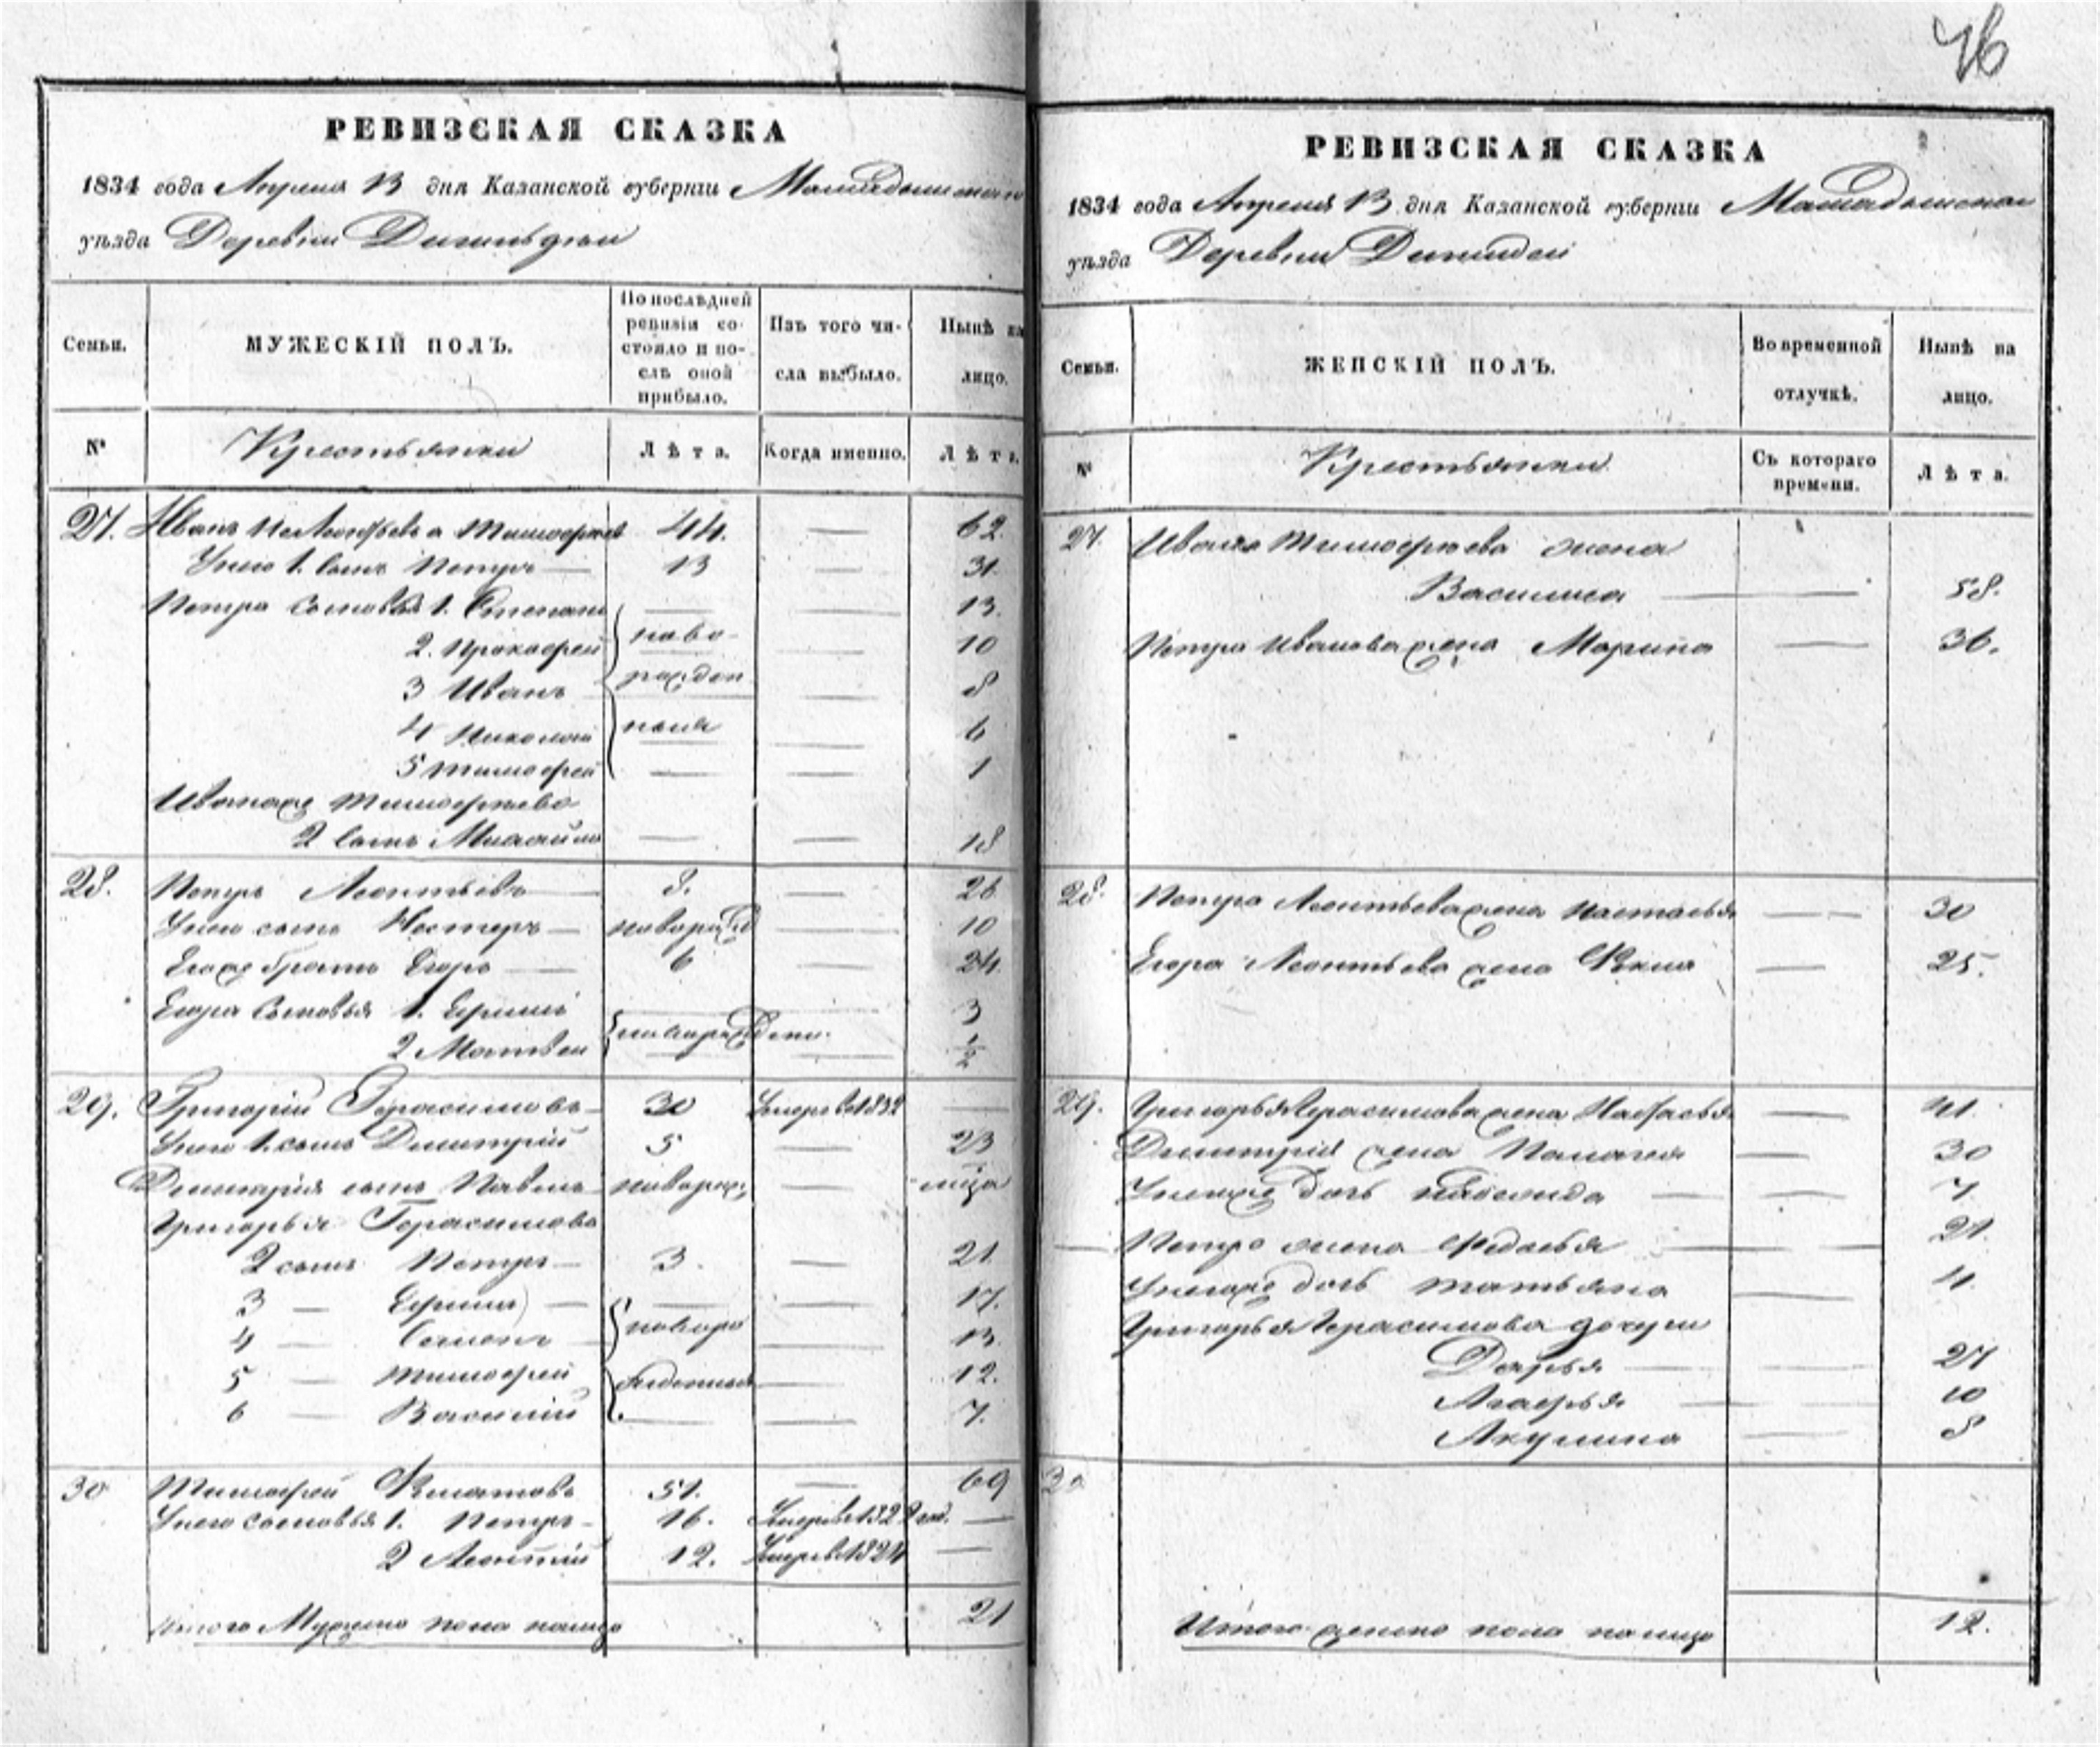 76
РЕВИЗСКАЯ СКАЗКА
1834 года Апреля 13 дня Казанской губернии Мамадышскаго
уѣзда Деревни
Семьи.
МУЖЕСКІЙ ПОЛЪ.
По послѣдней ревизіи состояло и послѣ оной прибыло.
Изъ того числа выбыло.
Нынѣ на лицо.
№
Крестьянки
Лѣта.
Когда именно.
Лѣта.
27. Иванъ Тимофеевъ 44. — 62.
У него 1. сынъ Петръ — 13 — 31.
Петра сыновья 1. Степанъ — — 13.
2. Прокофей ново- — 10
3 Иванъ рожден — 8
4 Николай ныя — 6
5 Тимофей — — 1
Иванаже Тимофеева
2 сынъ Михайло — — 18
28. Петръ Леонтьевъ — 8. — 26
У него сынъ Нестеръ — новорожд — 10
Егоже братъ Егоръ — 6 — 24.
Егора сыновья 1. Ефимъ — 3
2 Матвеи новорожден. — ½
29. Григорій Герасимовъ — 30 Умеръ в 1832 —
У него 1. сынъ Димитрій 5 — 23
Димитрія сынъ Павелъ новорож. — -мѣца
Григорья Герасимова
2 сынъ Петръ — 3. — 21.
3 — Ефимъ — — 17.
4 — Семенъ новоро — 13.
5 — Тимофей жденныя — 12.
6 — Василій — — 7.
30 Тимофей Филатовъ 51. — 69
У него сыновья 1. Петръ — 16. Умеръ в 1822 год. —
2 Леонтій 12. Умеръ в 1824 —
Итого Мужеска пола налицо 21
РЕВИЗСКАЯ СКАЗКА
1834 года Апреля 13 дня Казанской губерніи Мамадышскаго
уѣзда Деревни
Семьи.
ЖЕНСКІЙ ПОЛЪ.
Во временной отлучкѣ.
Нынѣ на лицо.
№
Крестьянки
Съ котораго времени.
Лѣта.
27. Ивана Тимофеева жена
Василиса — 58.
Петра Иванова жена Марина — 36.
28. Петра Леонтьева жена Настасья — 30
Егора Леонтьева жена Фекла — 25.
29. Григорья Герасимова жена Настасья — 41.
Димитрія жена Палагея — 30
У негоже дочь — 7
Петра жена Федосья — 21.
У негоже дочь Татьяна — 4.
Григорья Герасимова дочери
Дарья — 27
Агафья — 10
Акулина — 8
30
Итого женска пола налицо 12.